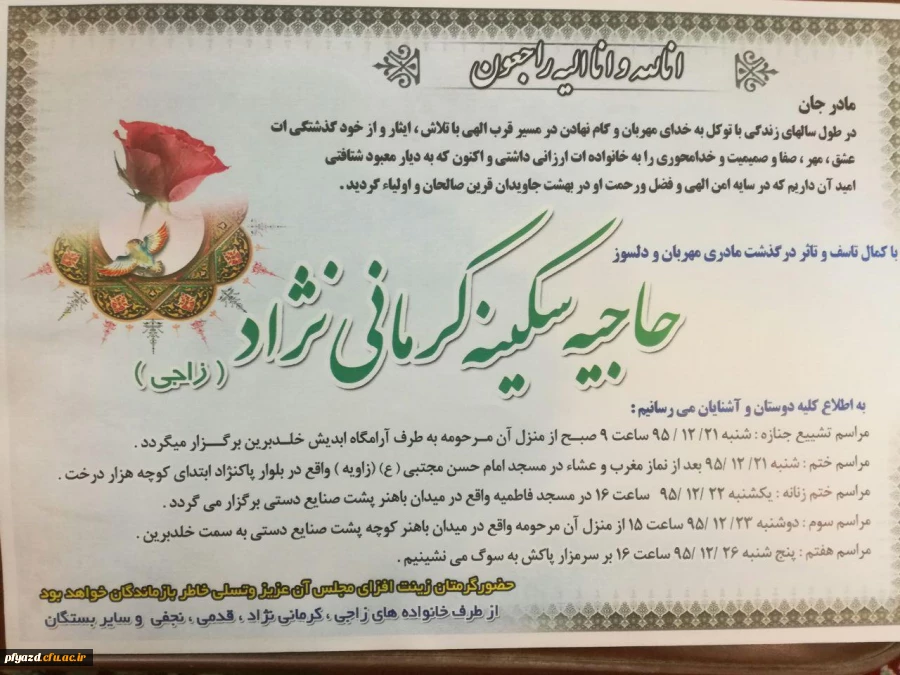 انالله و انا الیه راجعون
مادر جان
در طول سالهای زندگی با توکل به خدای مهربان و گام نهادن در مسیر قرب الهی با تلاش ، ایثار و از خود گذشتگی ات
عشق ، مهر ، صفا و صمیمیت و خدامحوری را به خانواده ات ارزانی داشتی و اکنون که به دیار معبود شتافتی
امید آن داریم که در سایه امن الهی و فضل ورحمت او در بهشت جاویدان قرین صالحان و اولیاء گردید .
با کمال تاسف و تاثر درگذشت مادری مهربان و دلسوز
حاجیه سکینه کرمانی نژاد
( زاجی )
به اطلاع کلیه دوستان و آشنایان می رسانیم :
مراسم تشییع جنازه : شنبه ۹۵/۱۲/۲۱ ساعت ۹ صبح از منزل آن مرحومه به طرف آرامگاه ابدیش خلدبرین برگزار میگردد .
مراسم ختم : شنبه ۹۵/۱۲/۲۱ بعد از نماز مغرب و عشاء در مسجد امام حسن مجتبی (ع) (زاویه ) واقع در بلوار پاکنژاد ابتدای کوچه هزار درخت .
مراسم ختم زنانه : یکشنبه ۹۵/۱۲/۲۲ ساعت ۱۶ در مسجد فاطمیه واقع در میدان باهنر پشت صنایع دستی برگزار می گردد .
مراسم سوم : دوشنبه ۹۵/۱۲/۲۳ ساعت ۱۵ از منزل آن مرحومه واقع در میدان باهنر کوچه پشت صنایع دستی به سمت خلدبرین .
مراسم هفتم : پنج شنبه ۹۵/۱۲/۲۶ ساعت ۱۶ بر سرمزار پاکش به سوگ می نشینیم .
حضورگرمتان زینت افزای مجلس آن عزیز وتسلی خاطر بازماندگان خواهد بود
از طرف خانواده های زاجی ، کرمانی نژاد ، قدمی ، نجفی و سایر بستگان
pfyazd.cfu.ac.ir